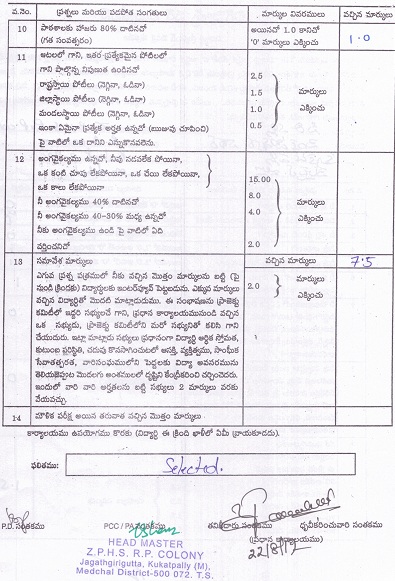 వ.నెం. ప్రశ్నలు మరియు పడపోత సంగతులు మార్కుల వివరములు వచ్చిన మార్కులు
10 పాఠశాలకు హాజరు 80% దాటినచో అయినచో 1.0 కానిచో 1.0
(గత సంవత్సరం) '0' మార్కులు ఎక్కించు
11 ఆటలలో గాని, ఇతర-ప్రత్యేకమైన పోటీలలో
గాని పాల్గొన్న నిపుణుత ఉండినచో
రాష్ట్రస్థాయి పోటీలు (నెగ్గినా, ఓడినా) 2.5
జిల్లాస్థాయి పోటీలు (నెగ్గినా, ఓడినా) 1.5 మార్కులు
మండలస్థాయి పోటీలు (నెగ్గినా, ఓడినా) 1.0 ఎక్కించు
ఇంకా ఏమైనా ప్రత్యేక అర్హత ఉన్నచో (ఋజువు చూపించి) 0.5
పై వాటిలో ఒక దానిని ఎన్నుకొనవలెను.
12 అంగవైకల్యము ఉన్నచో, నీవు నడవలేక పోయినా,
ఒక కంటి చూపు లేకపోయినా, ఒక చేయి లేకపోయినా, 15.00
ఒక కాలు లేకపోయినా 8.0
నీ అంగవైకల్యము 40% దాటినచో 4.0 మార్కులు
నీ అంగవైకల్యము 40-30% మధ్య ఉన్నచో ఎక్కించు
నీకు అంగవైకల్యము ఉండి పై వాటిలో ఏది
వర్తించనిచో 2.0
13 సమావేశ మార్కులు వచ్చిన మార్కులు 7.5
ఎగువ ప్రశ్న పత్రములో నీకు వచ్చిన మొత్తం మార్కులను బట్టి (పై
నుండి క్రిందకు) విద్యార్థులకు ఇంటర్వ్యూవ్ పెట్టబడును. ఎక్కువ మార్కులు 2.0 మార్కులు
వచ్చిన విద్యార్థితో మొదట మాట్లాడుదుము. ఈ సంభాషణను ప్రాజెక్టు ఎక్కించు
కమిటీలో ఇద్దరి సభ్యులచే గాని, ప్రధాన కార్యాలయమునుండి వచ్చిన
ఒక సభ్యుడు, ప్రాజెక్టు కమిటీలోని మరో సభ్యునితో కలిసి గాని
చేయుదురు. ఇట్లా మాట్లాడు సభ్యులు ప్రధానంగా విద్యార్థి ఆర్థిక స్తోమత,
కుటుంబ పరిస్థితి, చదువు కొనసాగించుటలో ఆసక్తి, వ్యక్తిత్వము, సాంఘిక
సేవాతత్పరత, వారిసంఘములోని పెద్దలకు విద్యా అవసరమును
తెలియజెప్పుట మొదలగు అంశములలో దృష్టిని కేంద్రీకరించి చర్చించెదరు.
ఇందులో వారి వారి అర్హతలను బట్టి సభ్యులు 2 మార్కులు వరకు
వేయవచ్చు.
14 మౌళిక పరీక్ష అయిన తరువాత వచ్చిన మొత్తం మార్కులు
కార్యాలయము ఉపయోగము కొరకు (విద్యార్థి ఈ క్రింది ఖాళీలో ఏమీ వ్రాయకూడదు).
ఫలితము: Selected.
P.D. సంతకము PCC / PA సంతకము తనిఖీదారు సంతకము ధృవీకరించువారి సంతకము
(ప్రధాన కార్యాలయము)
22/8/17
HEAD MASTER
Z.P.H.S. R.P. COLONY
Jagathgirigutta, Kukatpally (M),
Medchal District-500 072. T.S.